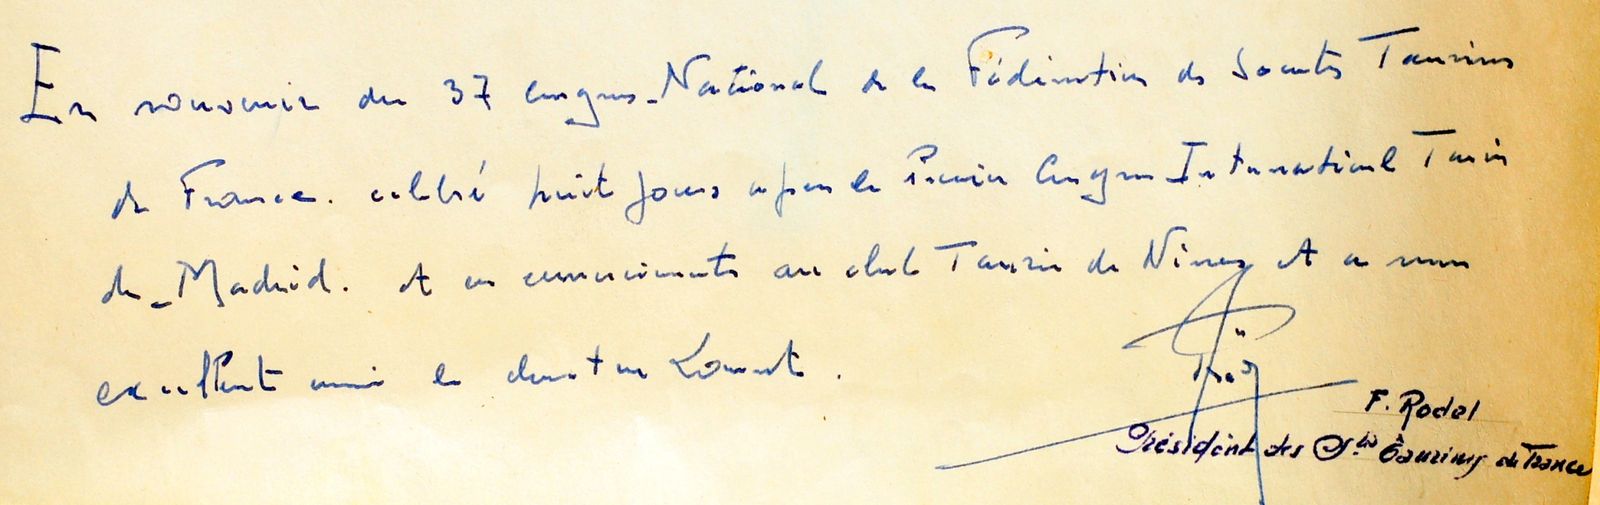 En souvenir du 37 congres National de la Fédération des Societes Taurines
de France. celebré huit jours apres le Premier Congres International Taurin
de Madrid. et en remerciements au club Taurin de Nimes et a mon
excellent ami le docteur
F. Rodel
Président des Stés Taurines de France